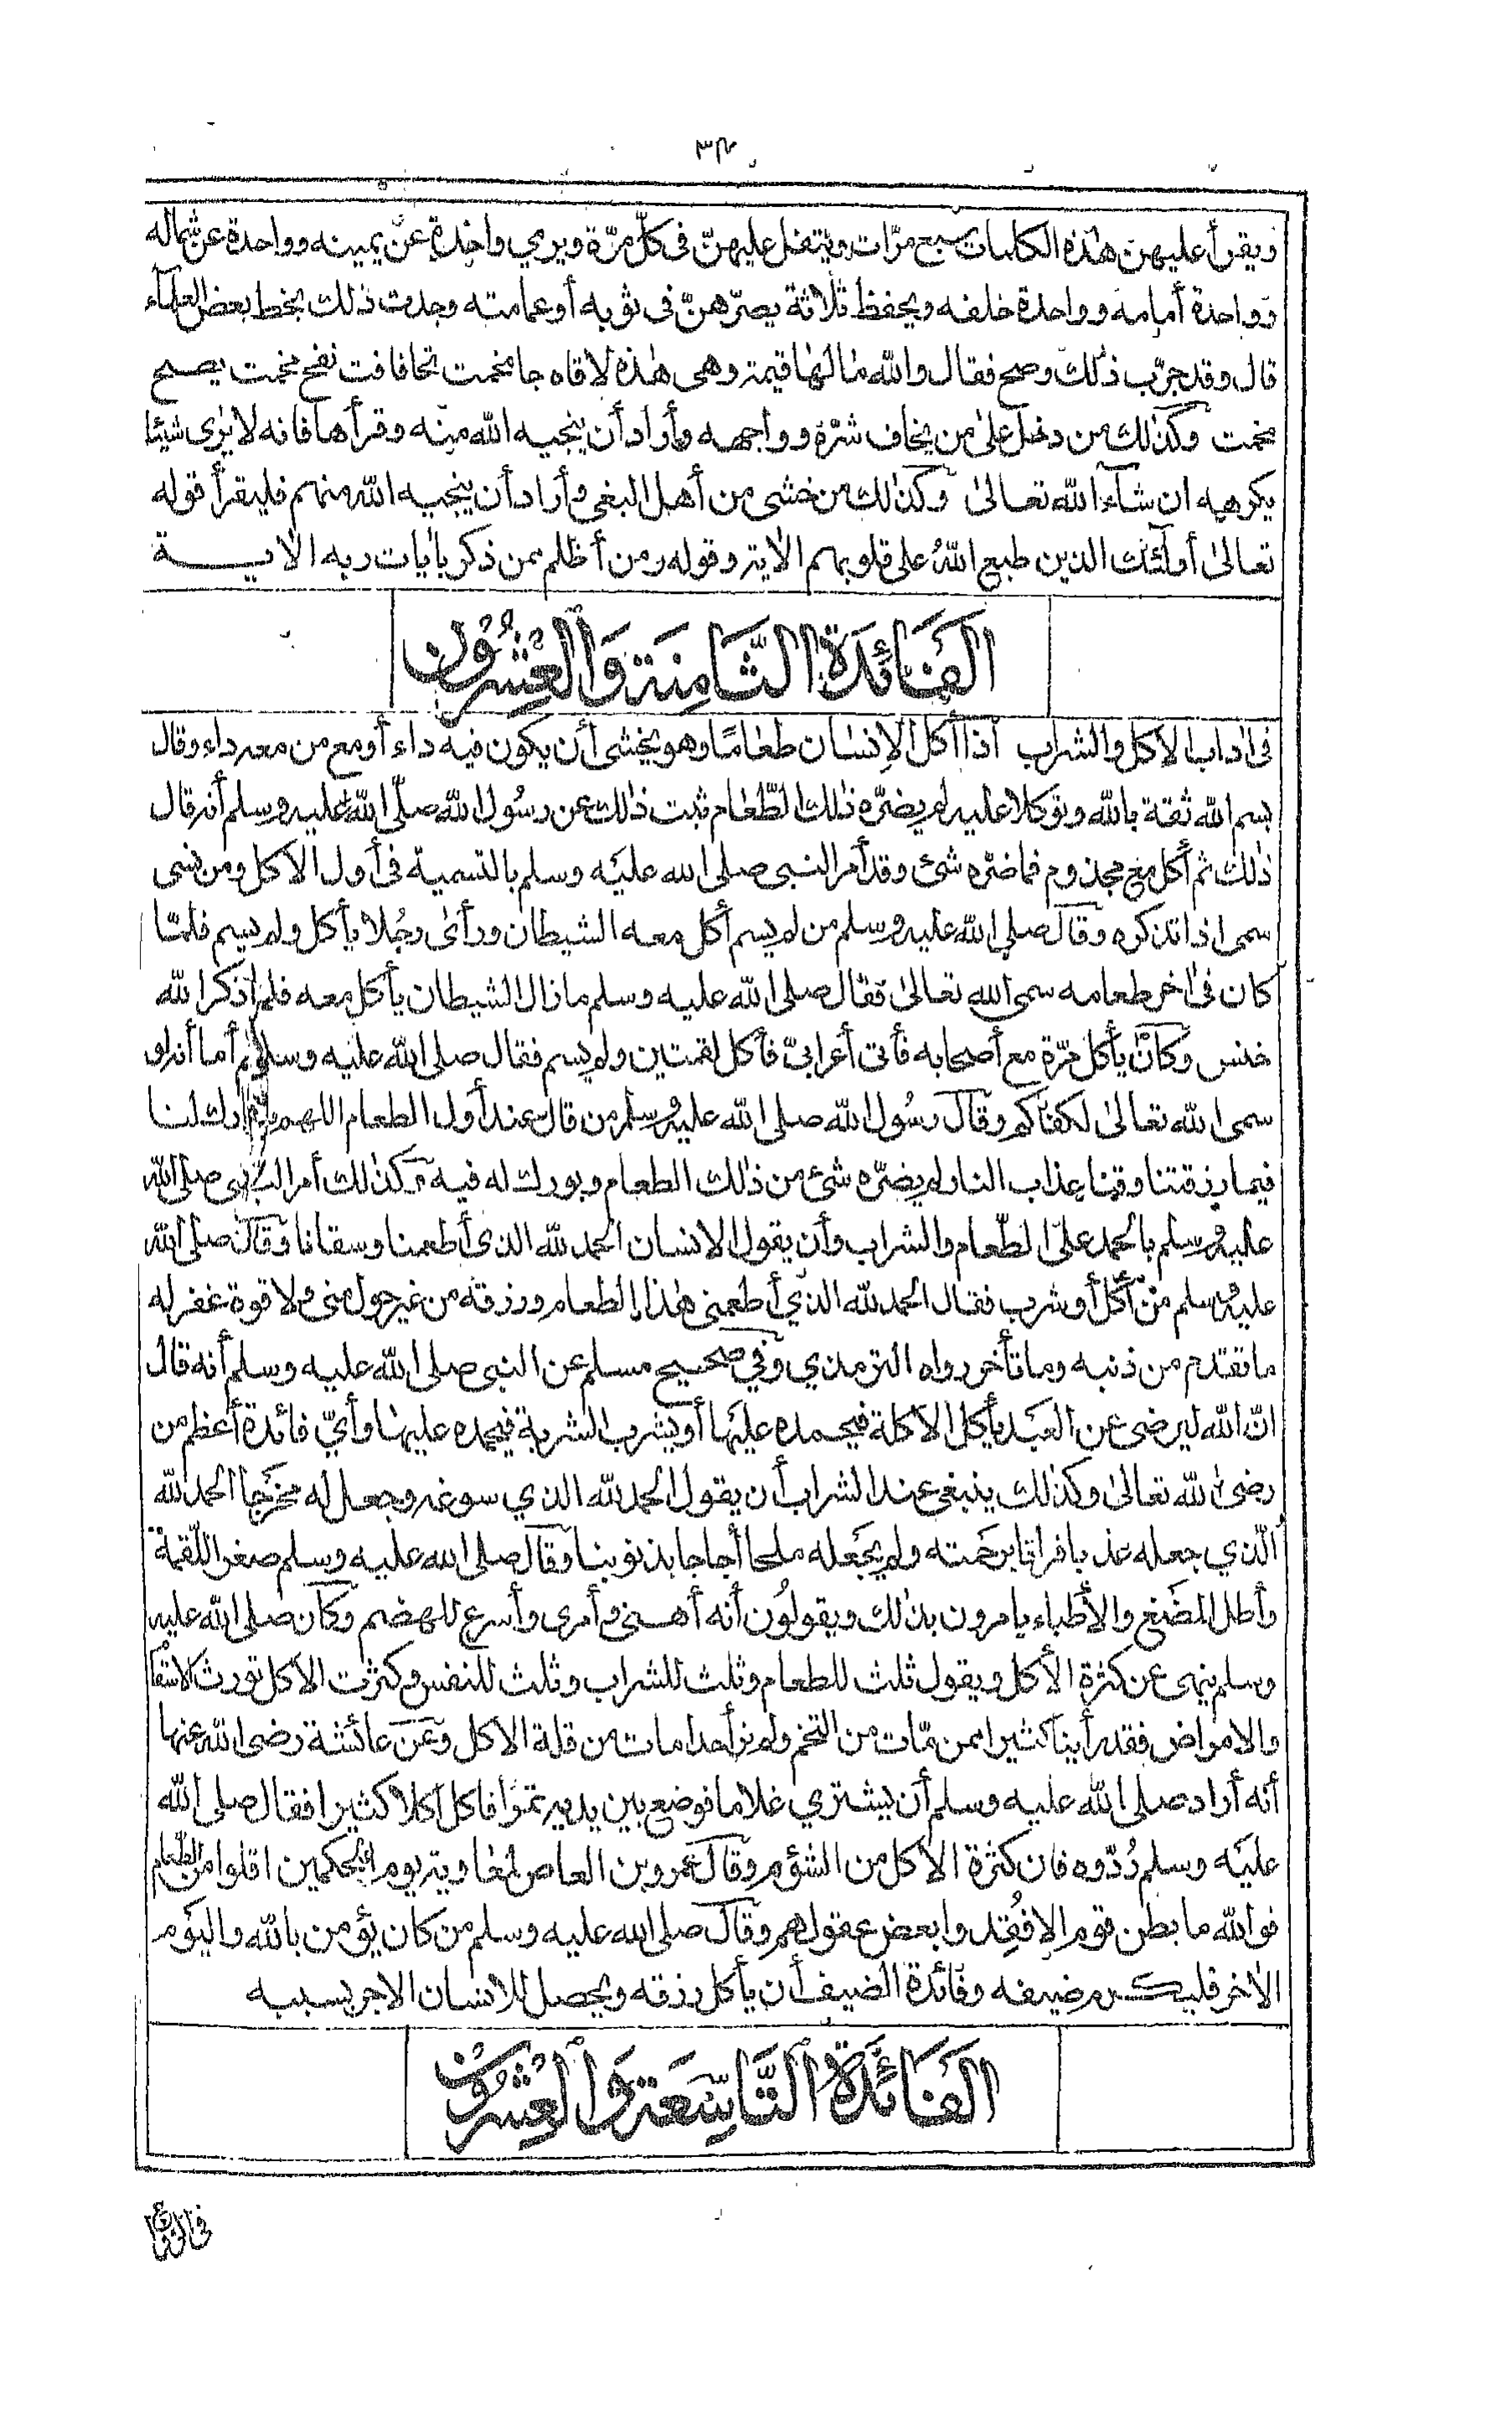 ٣٤
ويقرأ عليهن هذه الكلمات سبع مرّات ويتفل عليهنّ فى كلّ مرّة ويرمي واحدة عنّ يمينه وواحدة عن شماله
وواحدة أمامه وواحدة خلفه ويحفظ ثلاثة يصرّهنّ فى ثوبه أو عمامته وجدت ذلك بخط بعض العلمآء
قال وقد جرّب ذلك وصح فقال والله ما لها قيمة وهى هذه لاقاه جا مخمت تحافافت نفح مخمت يصح
مخمت وكذلك من دخل على من يخاف شرّه وواجهه وأراد أن ينجيه الله منه وقرأها فانه لا يرى شيئا
يكرهه ان شآء الله تعالى وكذلك من خشى من أهل البغى وأراد أن ينجيه الله منهم فليقرأ قوله
تعالى أولئك الذين طبع اللهُ على قلوبهم الاية وقوله ومن أظلم ممن ذكر بايات ربه الاية
الفَائِدَة الثَّامِنَة وَالعُشِرُون
فى اداب الاكل والشراب اذا أكل الإنسان طعامًا وهو يخشى أن يكون فيه داء أو مع من معه داء وقال
بسم الله ثقة بالله وتوكلا عليه لم يضرّه ذلك الطّعام ثبت ذلك عن رسُول الله صلّى الله عليه وسلم أنه قال
ذلك ثم أكل مع مجذوم فما ضرّه شئ وقد أمر النبى صلى الله عليه وسلم بالتسمية فى أول الاكل ومن نسى
سمى اذا تذكره وقال صلى الله عليه وسلم من لم يسم أكل معه الشيطان ورأى رجُلا يأكل ولم يسم فلمّا
كان فى اخر طعامه سمى الله تعالى فقال صلى الله عليه وسلم ما زال الشيطان يأكل معه فلما ذكر الله
خنس وكان يأكل مرّة مع أصحابه فأتى أعرابىّ فأكل لقمتين ولم يسم فقال صلى الله عليه وسلم أما أنه لو
سمى الله تعالى لكفاكم وقال رسُول الله صلى الله عليه وسلم من قال عند أول الطعام اللهم بارك لنا
فيما رزقتنا وقنا عذاب النار لم يضرّه شئ من ذلك الطعام وبورك له فيه وكذلك أمر النبى صلى الله
عليه وسلم بالحمد على الطّعام والشراب وأن يقول الانسان الحمد لله الذى أطعمنا وسقانا وقال صلى الله
عليه وسلم من أكل أو شرب فقال الحمد لله الذي أطعمنى هذا الطعام ورزقه من غير حول منى ولا قوة غفر له
ما تقدم من ذنبه وما تأخر رواه الترمذي وفي صحيح مسلم عن النبى صلى الله عليه وسلم أنه قال
انّ الله ليرضى عن العبد يأكل الاكلة فيحمده عليها أو يشرب الشربة فيحمده عليها وأيّ فائدة أعظم من
رضى الله تعالى وكذلك ينبغى عند الشراب أن يقول الحمد لله الذي سوغه وجعل له مخرَجا الحمد لله
الّذي جعله عذبا فراتا برحمته ولم يجعله ملحا أجاجا بذنوبنا وقال صلى الله عليه وسلم صغر اللّقمة
وأطل المضغ والأطباء يامرون بذلك ويقولُون أنه أهنى وأمرى وأسرع للهضم وكان صلى الله عليه
وسلم ينهى عن كثرة الأكل ويقول ثلث للطعام وثلث للشراب وثلث للنفس وكثرت الاكل تورث الاسقا
والامراض فقد رأينا كثيرا ممن مّات من التخم ولم نر أحدا مات من قلة الاكل وعن عائشة رضى الله عنها
أنه أراد صلى الله عليه وسلم أن يشتري غلاما فوضع بين يديه تمرا فاكل اكلا كثيرا فقال صلى الله
عليه وسلم رُدّوه فان كثرة الاكل من الشؤم وقال عمرو بن العاص لمعاوية يوم الحكمين اقلوا من الطّعام
فوالله ما بطن قوم الا فُقِدوا بعض عقولهم وقال صلى الله عليه وسلم من كان يؤمن بالله واليوم
الاخر فليكرم ضيفه وفائدة الضيف أن يأكل رزقه ويحصل للانسان الاجر بسببه
الفَائِدَة التَّاسِعَة وَالعُشِرُون